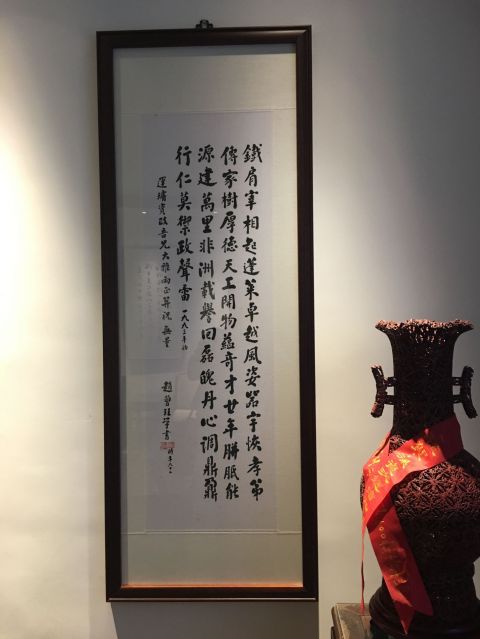 鐵肩宰相起蓬萊卓越風姿器宇恢孝弟
傳家樹厚德天工開物蘊奇才廿年胼胝能
源建萬里非洲載譽回磊魄丹心調鼎鼐
行仁莫禦政聲雷 一九九三年
運璿資政吾兄大雅兩正并祝無量
趙曾珏 書